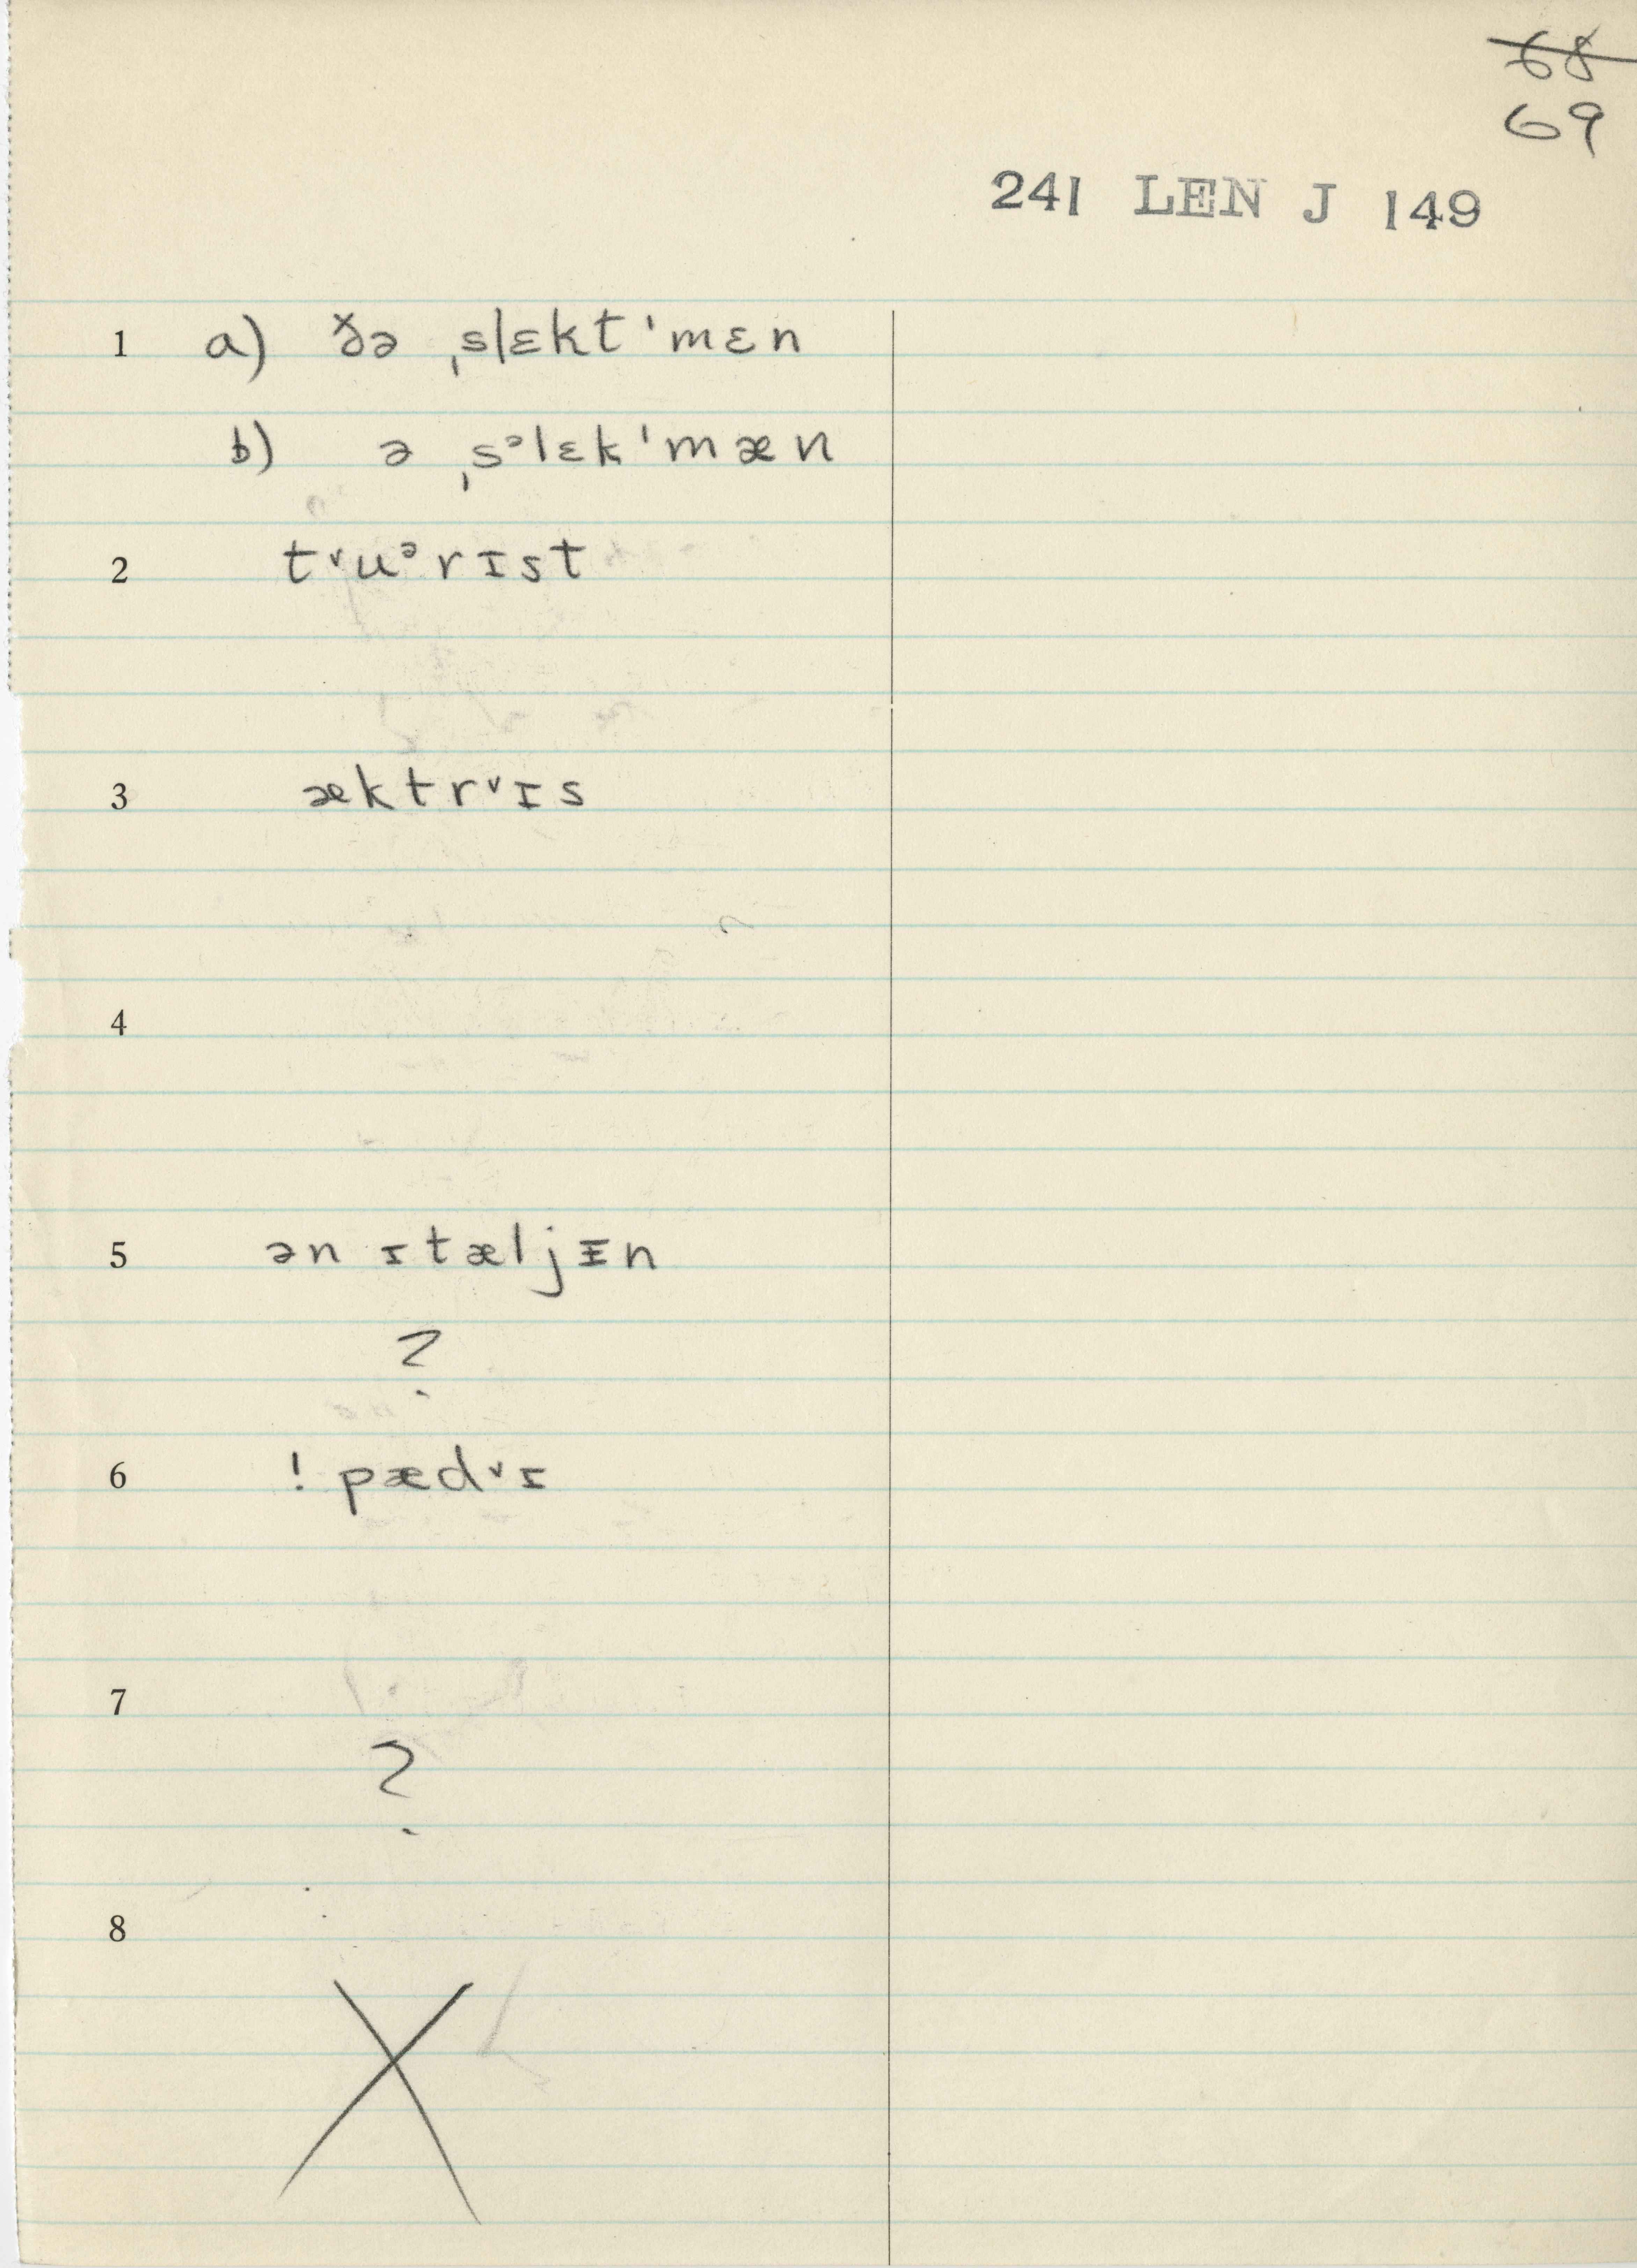 68
69
241 LEN J 149
1 a) ðə ˌslɛkt ˈmɛn
b) ə ˌsᵊlɛk ˈmæn
2 t˅uᵊrɪst
3 æktr˅ɪs
4
5 ən ɪtæljᵻn
?
6 ! pæd˅ɪ
7
?
8
X